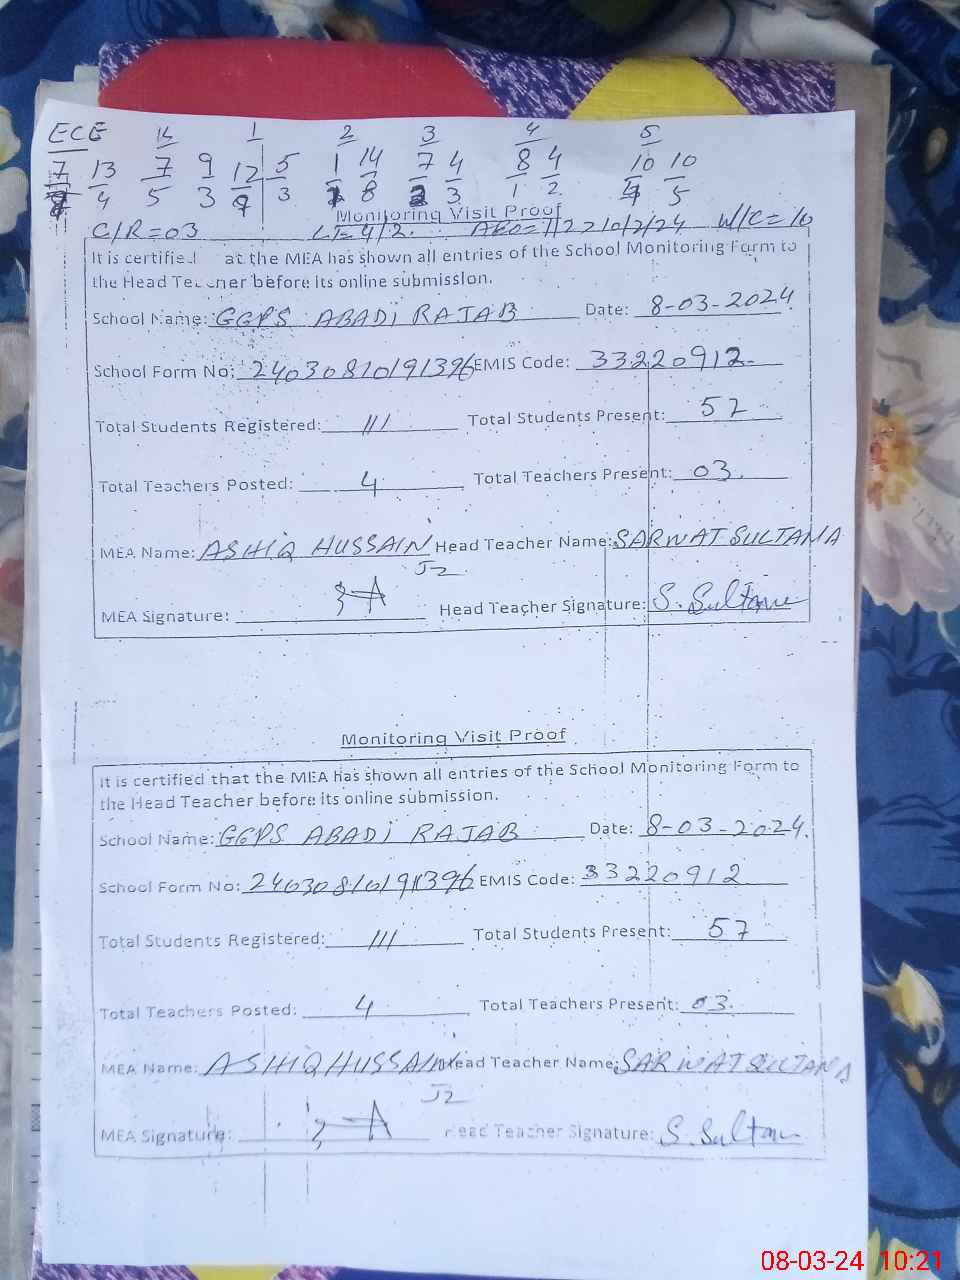 ECE K 1 2 3 4 5
7 13 7 9 12 5 1 14 7 4 8 4 10 10
4 5 3 9 3 8 2 3 1 2 4 5
Monitoring Visit Proof
C/R=03 LT=4/2. AEO=1/22/02/24 W/C=16
It is certified at the MEA has shown all entries of the School Monitoring Form to
the Head Teacher before its online submission.
School Name: GGPS ABADI RAJAB Date: 8-03-2024
School Form No: 24030810191396 EMIS Code: 33220912
Total Students Registered: 111 Total Students Present: 57
Total Teachers Posted: 4 Total Teachers Present: 03
MEA Name: ASHIQ HUSSAIN Head Teacher Name: SARWAT SULTANA
J2
MEA Signature: Head Teacher Signature: S. Sultana
Monitoring Visit Proof
It is certified that the MEA has shown all entries of the School Monitoring Form to
the Head Teacher before its online submission.
School Name: GGPS ABADI RAJAB Date: 8-03-2024.
School Form No: 24030810191396 EMIS Code: 33220912
Total Students Registered: 111 Total Students Present: 57
Total Teachers Posted: 4 Total Teachers Present: 03.
MEA Name: ASHIQ HUSSAIN Head Teacher Name: SARWAT SULTANA
J2
MEA Signature: Head Teacher Signature: S. Sultana
08-03-24 10:21